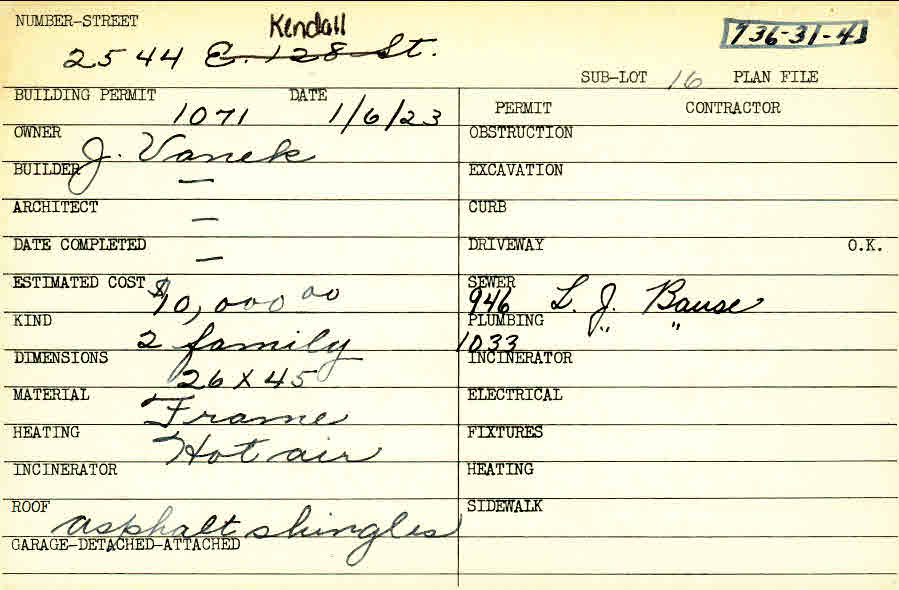 NUMBER-STREET
Kendall
2544 E. 128 St.
736-31-41
SUB-LOT 16 PLAN FILE
BUILDING PERMIT 1071 DATE 1/6/23
PERMIT CONTRACTOR
OWNER J. Vanek
OBSTRUCTION
BUILDER —
EXCAVATION
ARCHITECT —
CURB
DATE COMPLETED —
DRIVEWAY O.K.
ESTIMATED COST $10,000 00
SEWER 946 L. J. Bause
KIND 2 family
PLUMBING 1033 " "
DIMENSIONS 26 X 45
INCINERATOR
MATERIAL Frame
ELECTRICAL
HEATING Hot air
FIXTURES
INCINERATOR
HEATING
ROOF asphalt shingles
SIDEWALK
GARAGE-DETACHED-ATTACHED